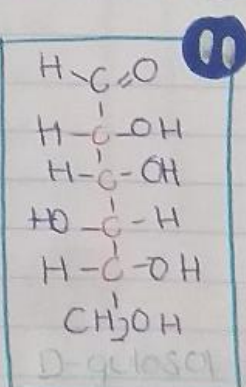 H C=O
H-C-OH
H-C-OH
HO-C-H
H-C-OH
CH2OH
D-gulosa